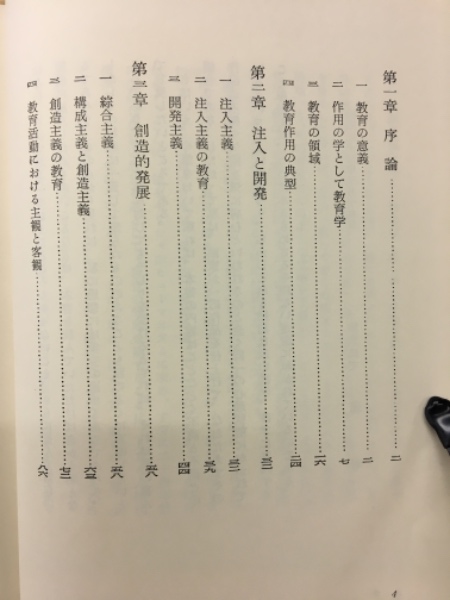 第一章 序論……二
一 教育の意義……二
二 作用の学として教育学……七
三 教育の領域……一六
四 教育作用の典型……二四
第二章 注入と開発……三二
一 注入主義……三二
二 注入主義の教育……三九
三 開発主義……四四
第三章 創造的発展……五八
一 綜合主義……五八
二 構成主義と創造主義……六三
三 創造主義の教育……七二
四 教育活動における主観と客観……八六
4